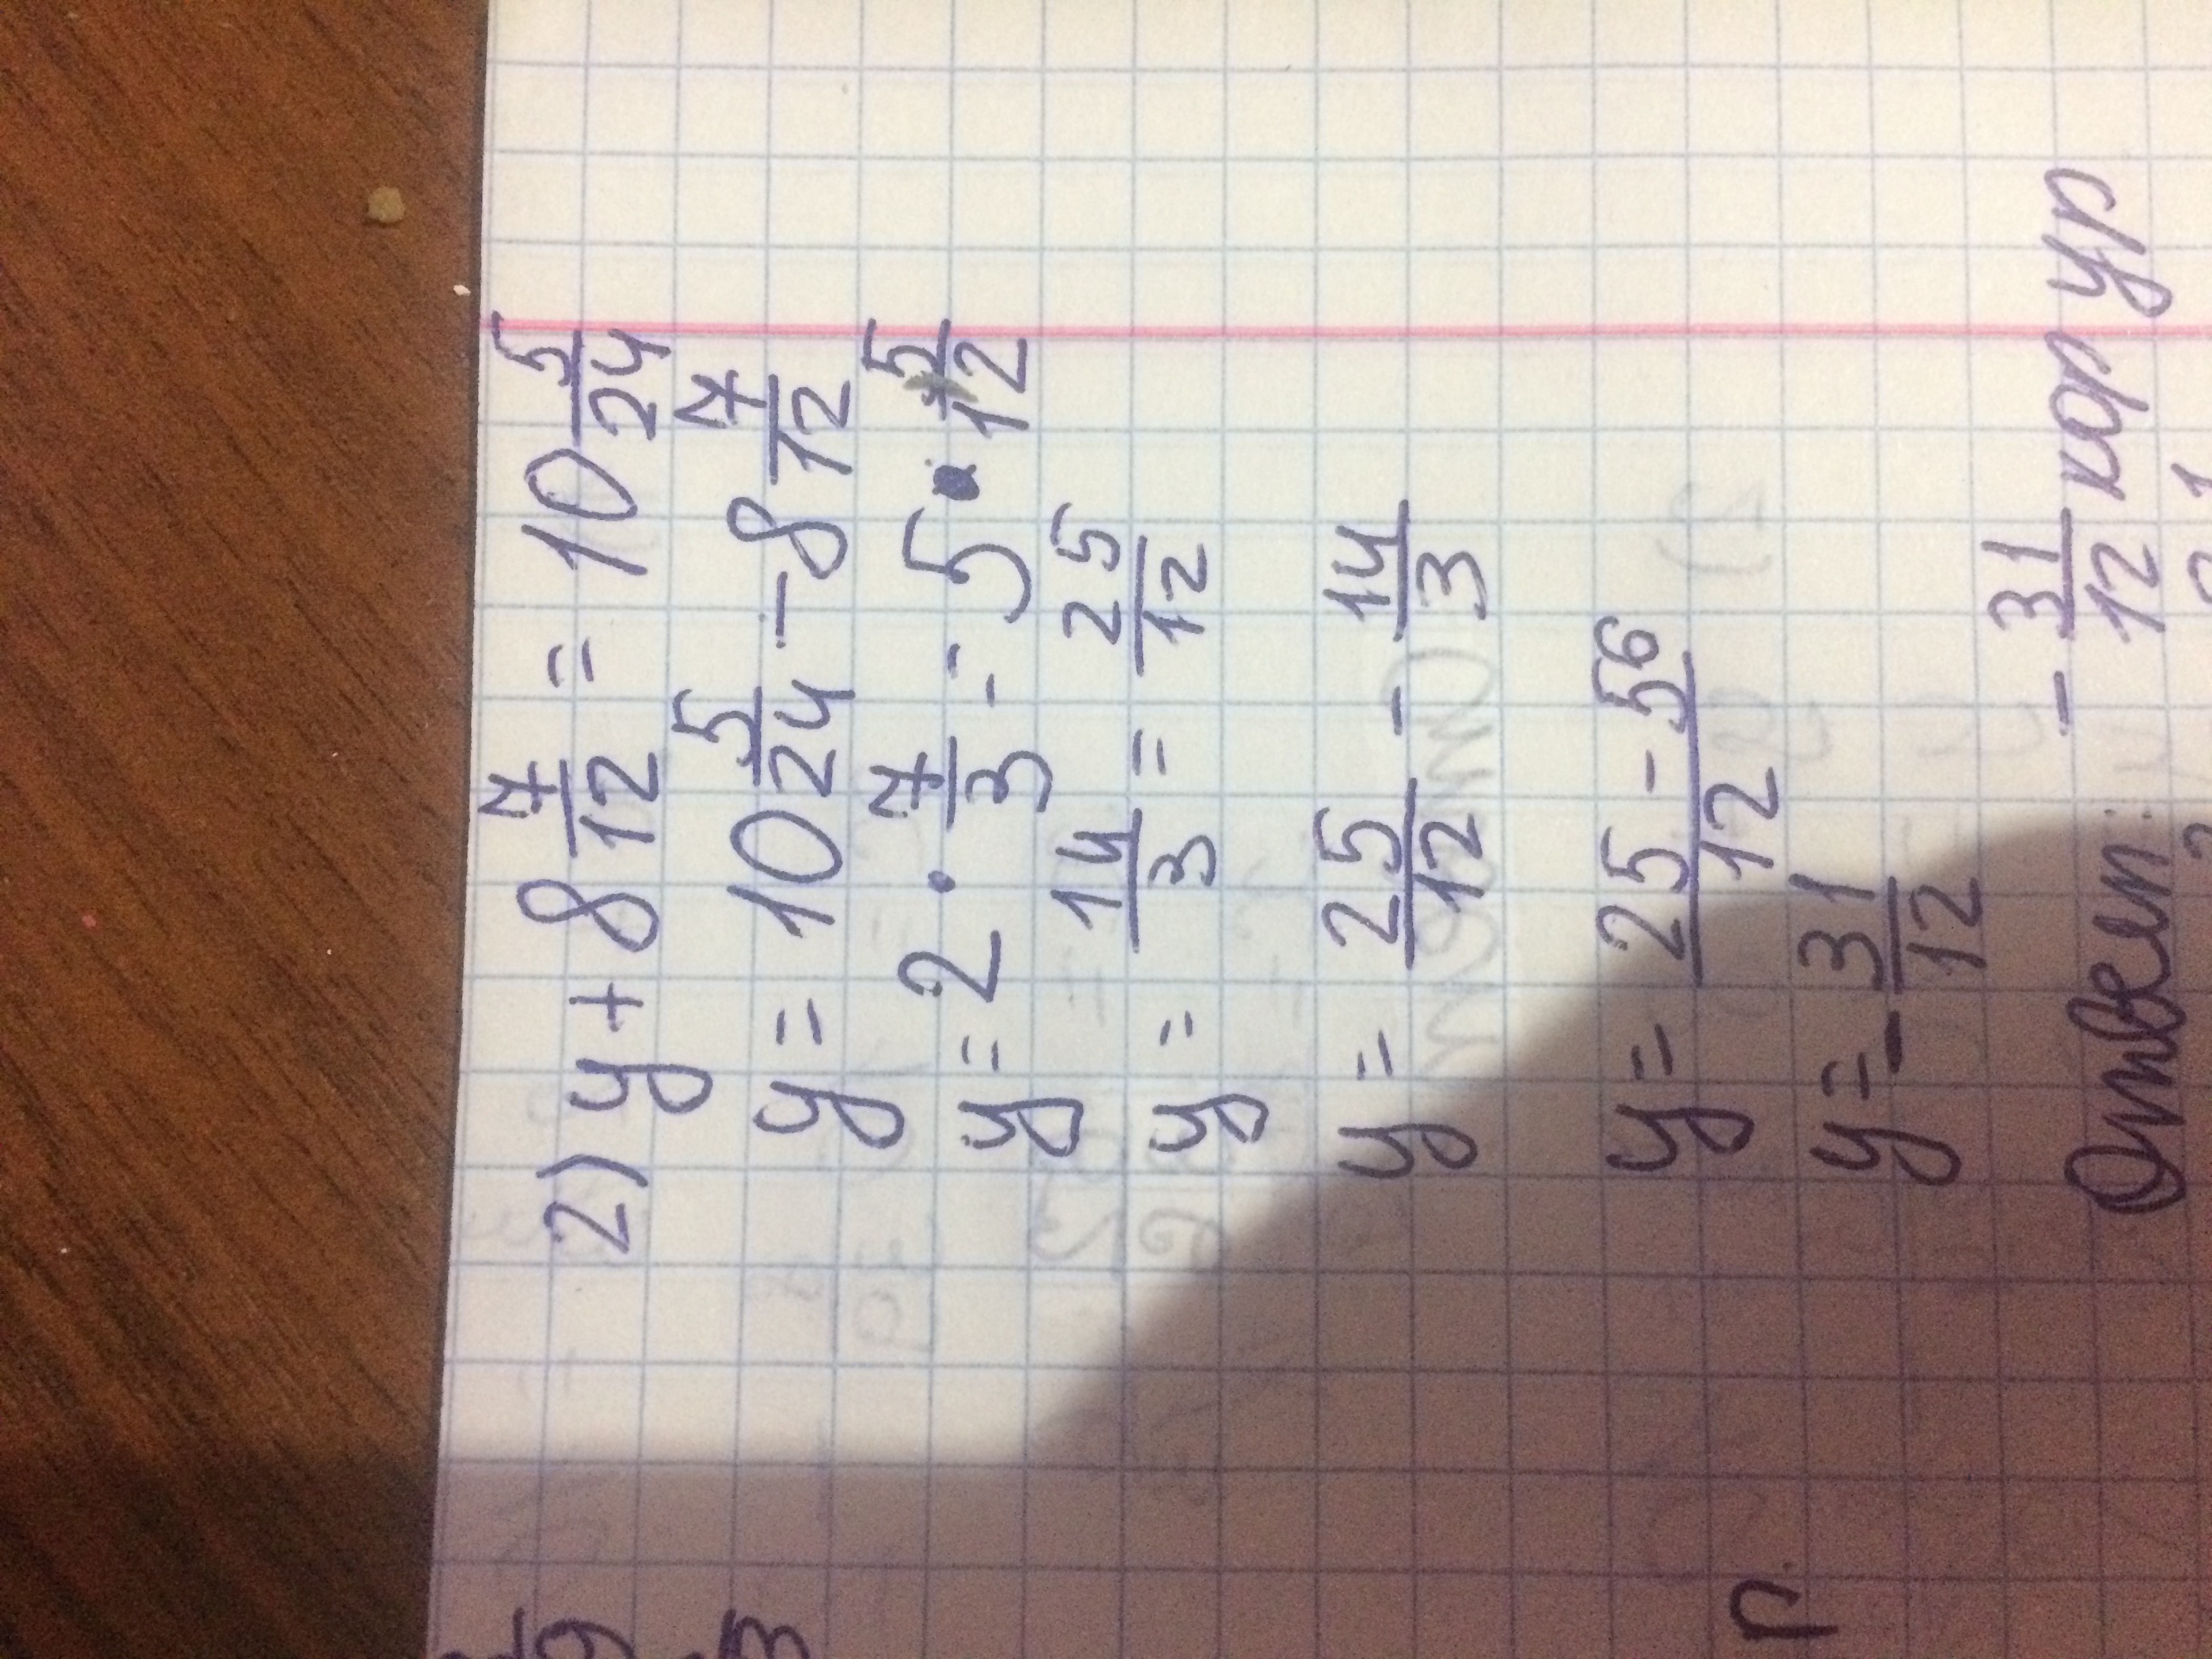 2) y + 8 7/12 = 10 5/24
y = 10 5/24 - 8 7/12
y = 2 · 7/3 = 5 · 5/12
y = 14/3 = 25/12
y = 25/12 - 14/3
y = 25 - 56/12
y = - 31/12
Ответ: - 31/12 кор ур
г